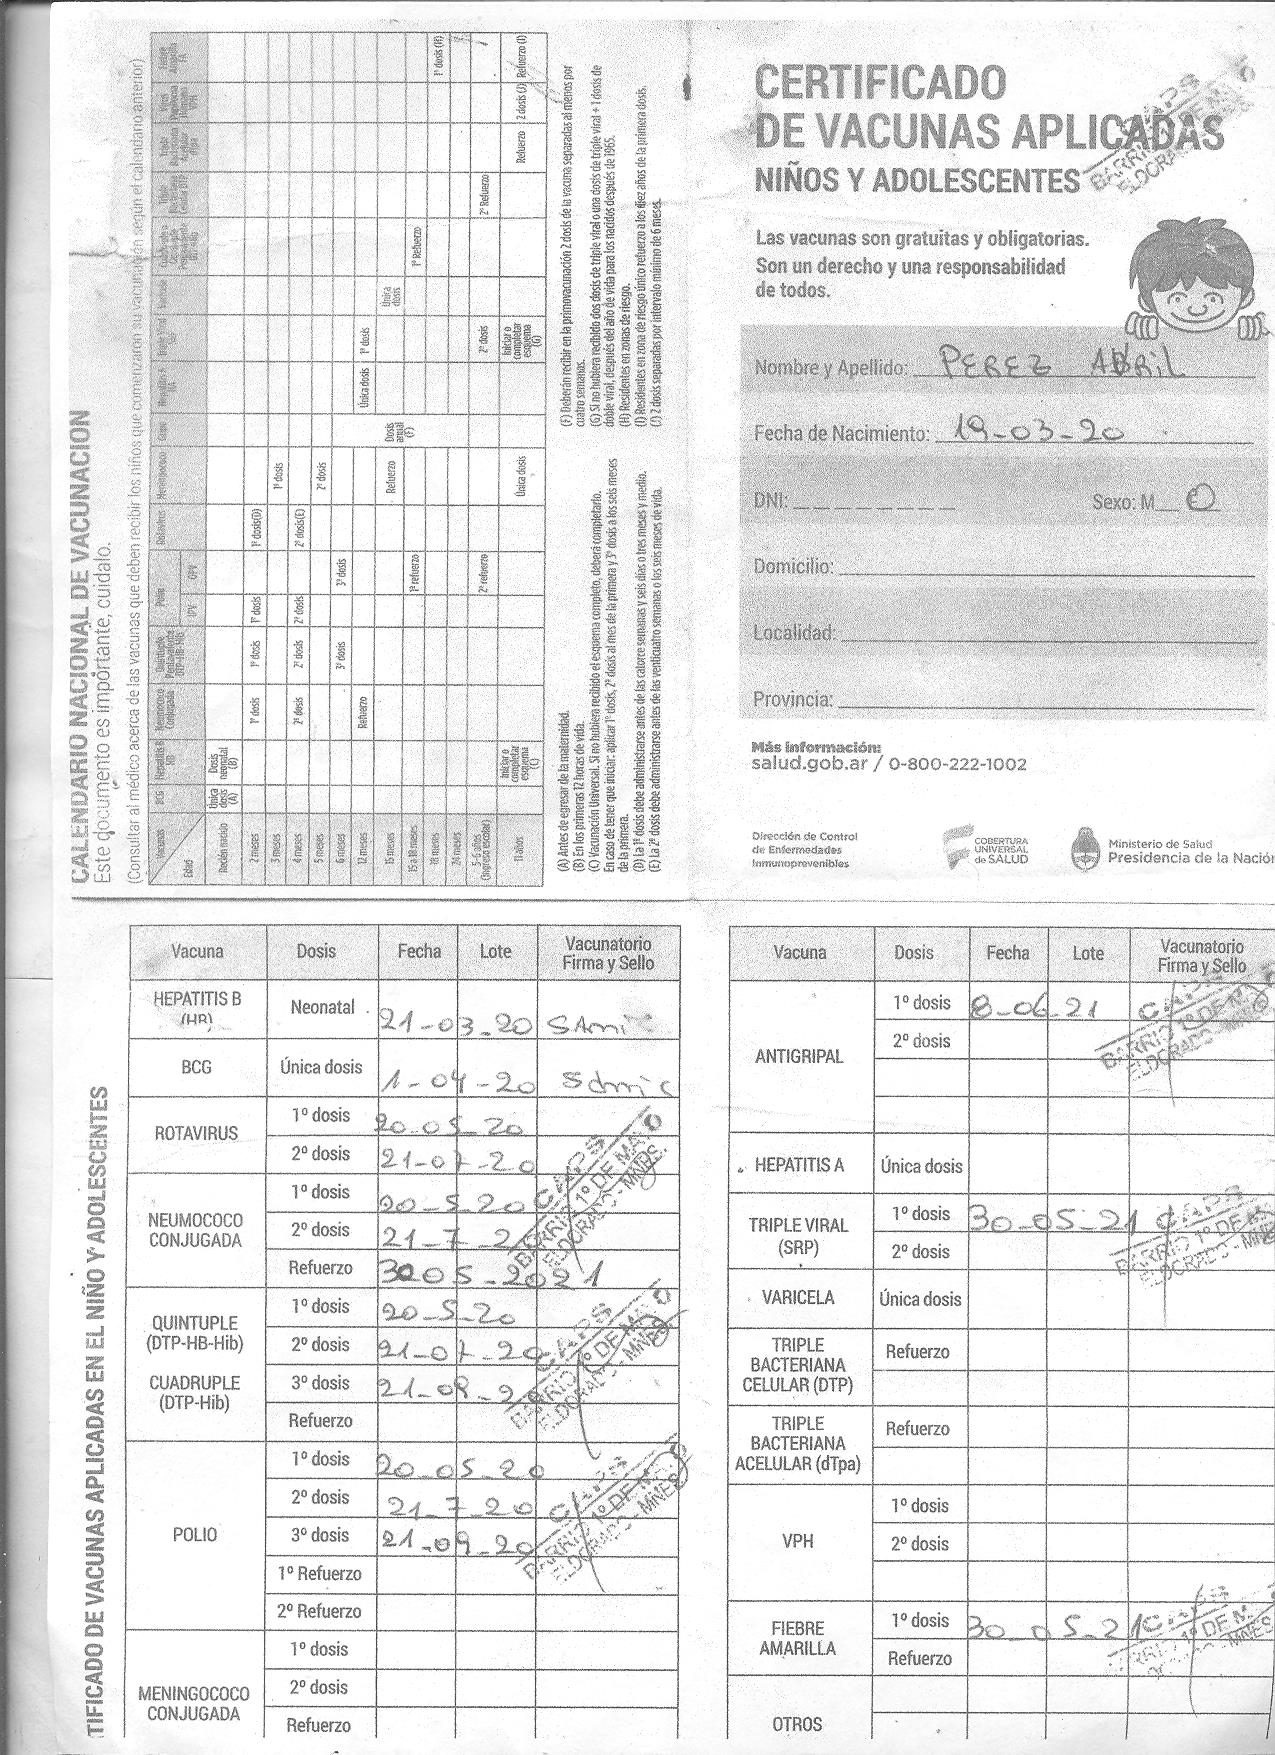 CALENDARIO NACIONAL DE VACUNACION
Este documento es importante, cuidalo.
(Consultar al médico acerca de las vacunas que deben recibir los niños que comenzaron su vacunación según el calendario anterior)
Vacunas
Edad
BCG
Hepatitis B
HB
Neumococo
Conjugada
Quíntuple
Pentavalente
DTP-HB-Hib
Polio
IPV
OPV
Rotavirus
Meningococo
Gripe
Hepatitis A
HA
Triple Viral
SRP
Varicela
Recién nacido
Única dosis (A)
Dosis neonatal (B)
2 meses
1º dosis
1º dosis
1º dosis
1º dosis(D)
3 meses
1º dosis
4 meses
2º dosis
2º dosis
2º dosis
2º dosis(E)
5 meses
2º dosis
6 meses
3º dosis
3º dosis
Dosis anual (F)
12 meses
Refuerzo
Única dosis
1º dosis
15 meses
Refuerzo
Única dosis
15 a 18 meses
1º refuerzo
1º Refuerzo
18 meses
1º dosis (H)
24 meses
5-6 años
(Ingreso escolar)
2º refuerzo
2º dosis
2º Refuerzo
11 años
Iniciar o completar esquema (C)
Única dosis
Iniciar o completar esquema (G)
Refuerzo
2 dosis (J)
Refuerzo (I)
(A) Antes de egresar de la maternidad.
(B) En los primeras 12 horas de vida.
(C) Vacunación Universal. Si no hubiera recibido el esquema completo, deberá completarlo.
En caso de tener que iniciar: aplicar 1º dosis, 2º dosis al mes de la primera y 3º dosis a los seis meses
de la primera.
(D) La 1º dosis debe administrarse antes de las catorce semanas y seis días o tres meses y medio.
(E) La 2º dosis debe administrarse antes de las veinticuatro semanas o los seis meses de vida.
(F) Deberán recibir en la primovacunación 2 dosis de la vacuna separadas al menos por
cuatro semanas.
(G) Si no hubiera recibido dos dosis de triple viral o una dosis de triple viral + 1 dosis de
doble viral, después del año de vida para los nacidos después de 1965.
(H) Residentes en zonas de riesgo.
(I) Residentes en zona de riesgo único refuerzo a los diez años de la primera dosis.
(J) 2 dosis separadas por intervalo mínimo de 6 meses.
CERTIFICADO
DE VACUNAS APLICADAS
NIÑOS Y ADOLESCENTES
CAPS
BARRIO 1º DE MAYO
ELDORADO
Las vacunas son gratuitas y obligatorias.
Son un derecho y una responsabilidad
de todos.
Nombre y Apellido: PEREZ ABRIL
Fecha de Nacimiento: 19-03-20
DNI: Sexo: M
Domicilio:
Localidad:
Provincia:
Más información:
salud.gob.ar / 0-800-222-1002
Dirección de Control
de Enfermedades
Inmunoprevenibles
COBERTURA
UNIVERSAL
de SALUD
Ministerio de Salud
Presidencia de la Nación
TIFICADO DE VACUNAS APLICADAS EN EL NIÑO Y ADOLESCENTES
Vacuna Dosis Fecha Lote Vacunatorio Firma y Sello
HEPATITIS B (HB) Neonatal 21-03-20 SAmic
BCG Única dosis 1-04-20 Samic
ROTAVIRUS 1º dosis 20-05-20
2º dosis 21-07-20
NEUMOCOCO CONJUGADA 1º dosis 20-5-20
2º dosis 21-7-20
Refuerzo 30-05-2021
CAPS
BARRIO 1º DE MAYO
ELDORADO - MNES.
QUINTUPLE (DTP-HB-Hib) 1º dosis 20-5-20
2º dosis 21-07-20
CUADRUPLE (DTP-Hib) 3º dosis 21-09-20
Refuerzo
CAPS
BARRIO 1º DE MAYO
ELDORADO - MNES
POLIO 1º dosis 20-05-20
2º dosis 21-7-20
3º dosis 21-09-20
1º Refuerzo
2º Refuerzo
CAPS
BARRIO 1º DE MAYO
ELDORADO - MNES
MENINGOCOCO CONJUGADA 1º dosis
2º dosis
Refuerzo
Vacuna Dosis Fecha Lote Vacunatorio Firma y Sello
ANTIGRIPAL 1º dosis 8-06-21
2º dosis
CAPS
BARRIO 1º DE MA
ELDORADO - MNES
HEPATITIS A Única dosis
TRIPLE VIRAL (SRP) 1º dosis 30-05-21
2º dosis
CAPS
BARRIO 1º DE M
ELDORADO - MNES
VARICELA Única dosis
TRIPLE BACTERIANA CELULAR (DTP) Refuerzo
TRIPLE BACTERIANA ACELULAR (dTpa) Refuerzo
VPH 1º dosis
2º dosis
FIEBRE AMARILLA 1º dosis 30-05-21
Refuerzo
CAPS
BARRIO 1º DE M
MNES
OTROS